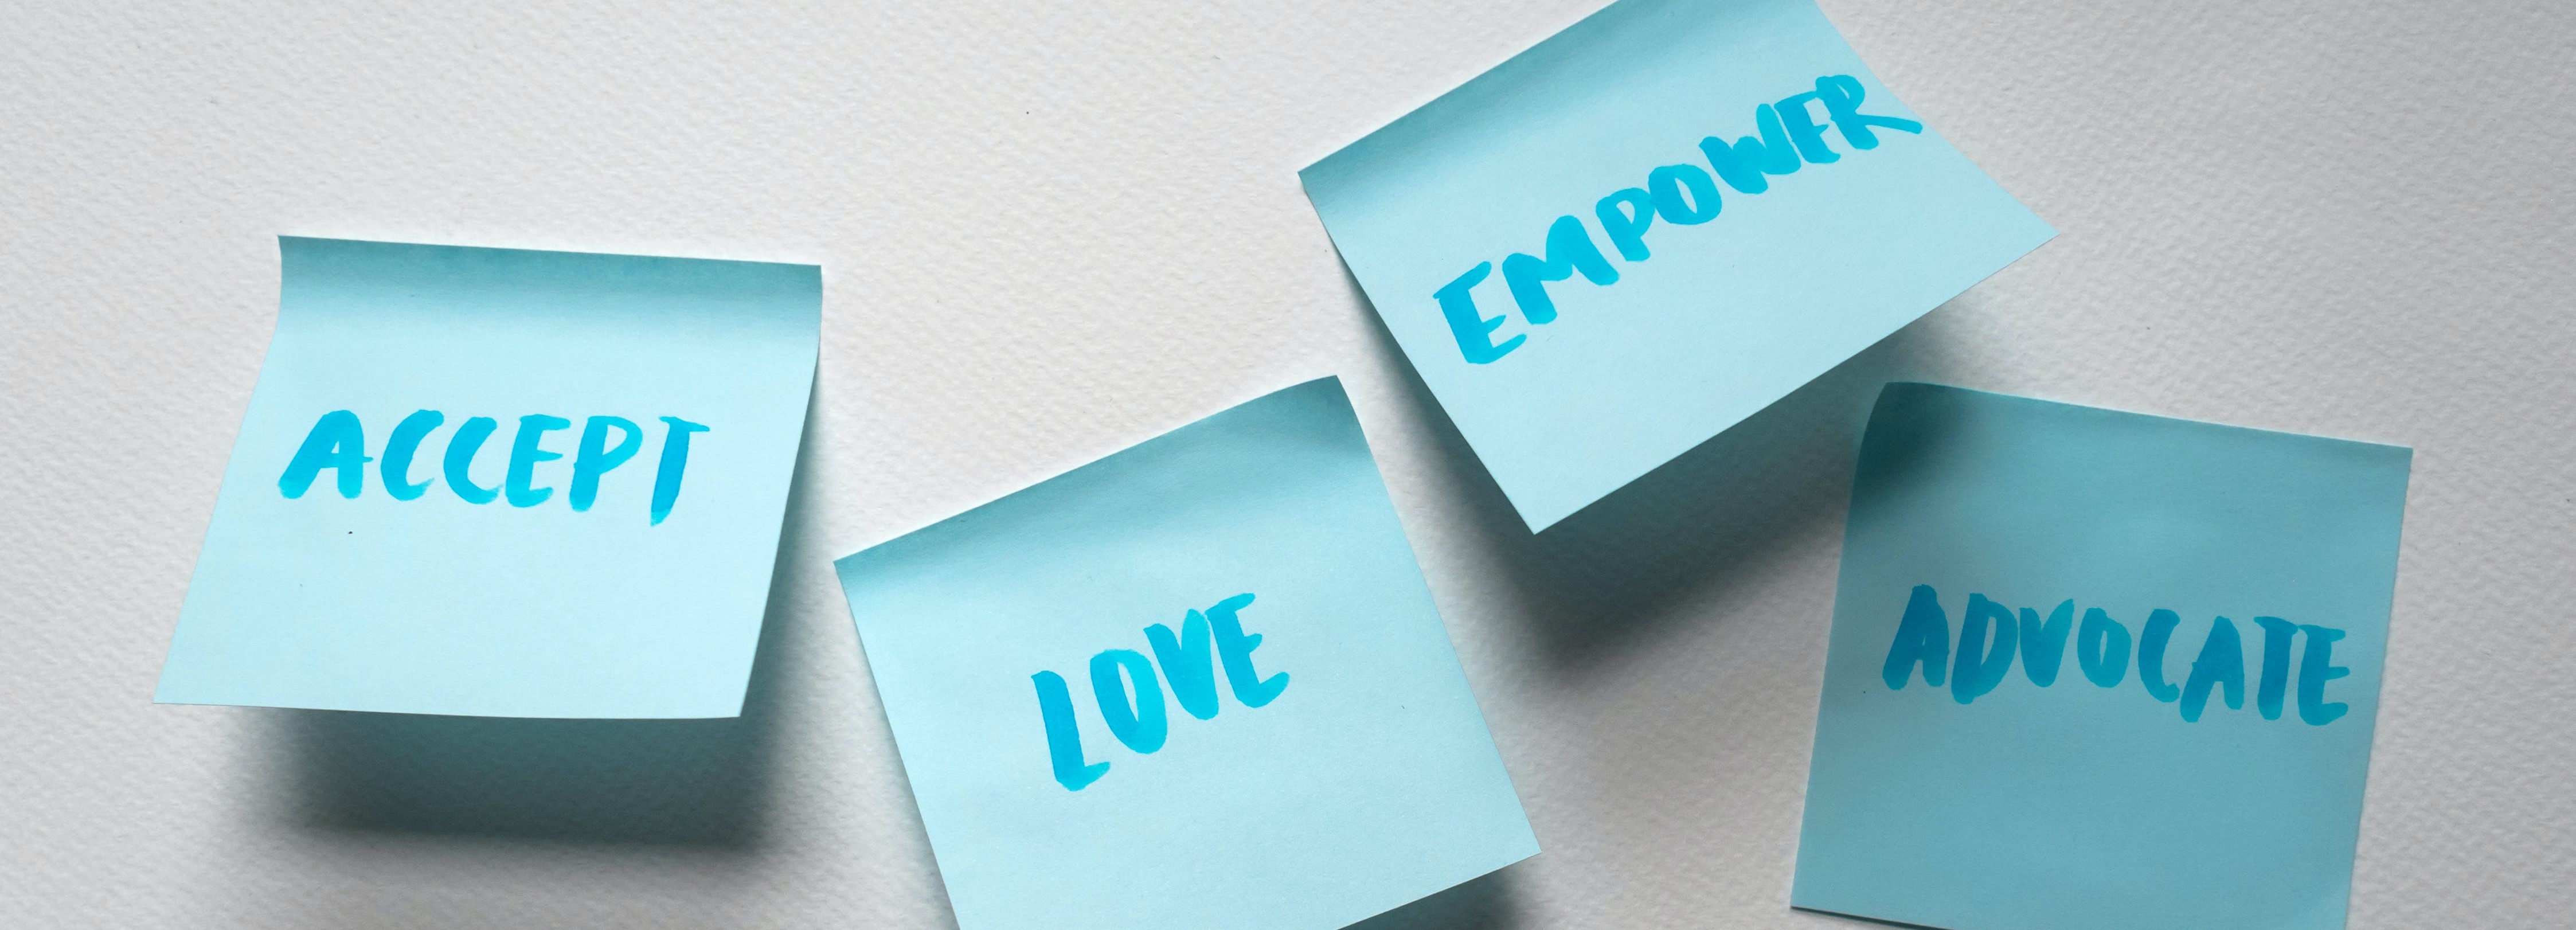 ACCEPT
LOVE
EMPOWER
ADVOCATE